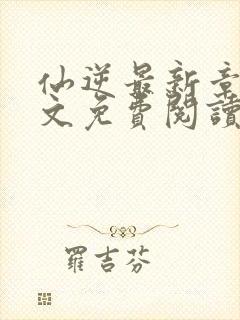 仙逆最新章
文免費閱讀
羅吉芬